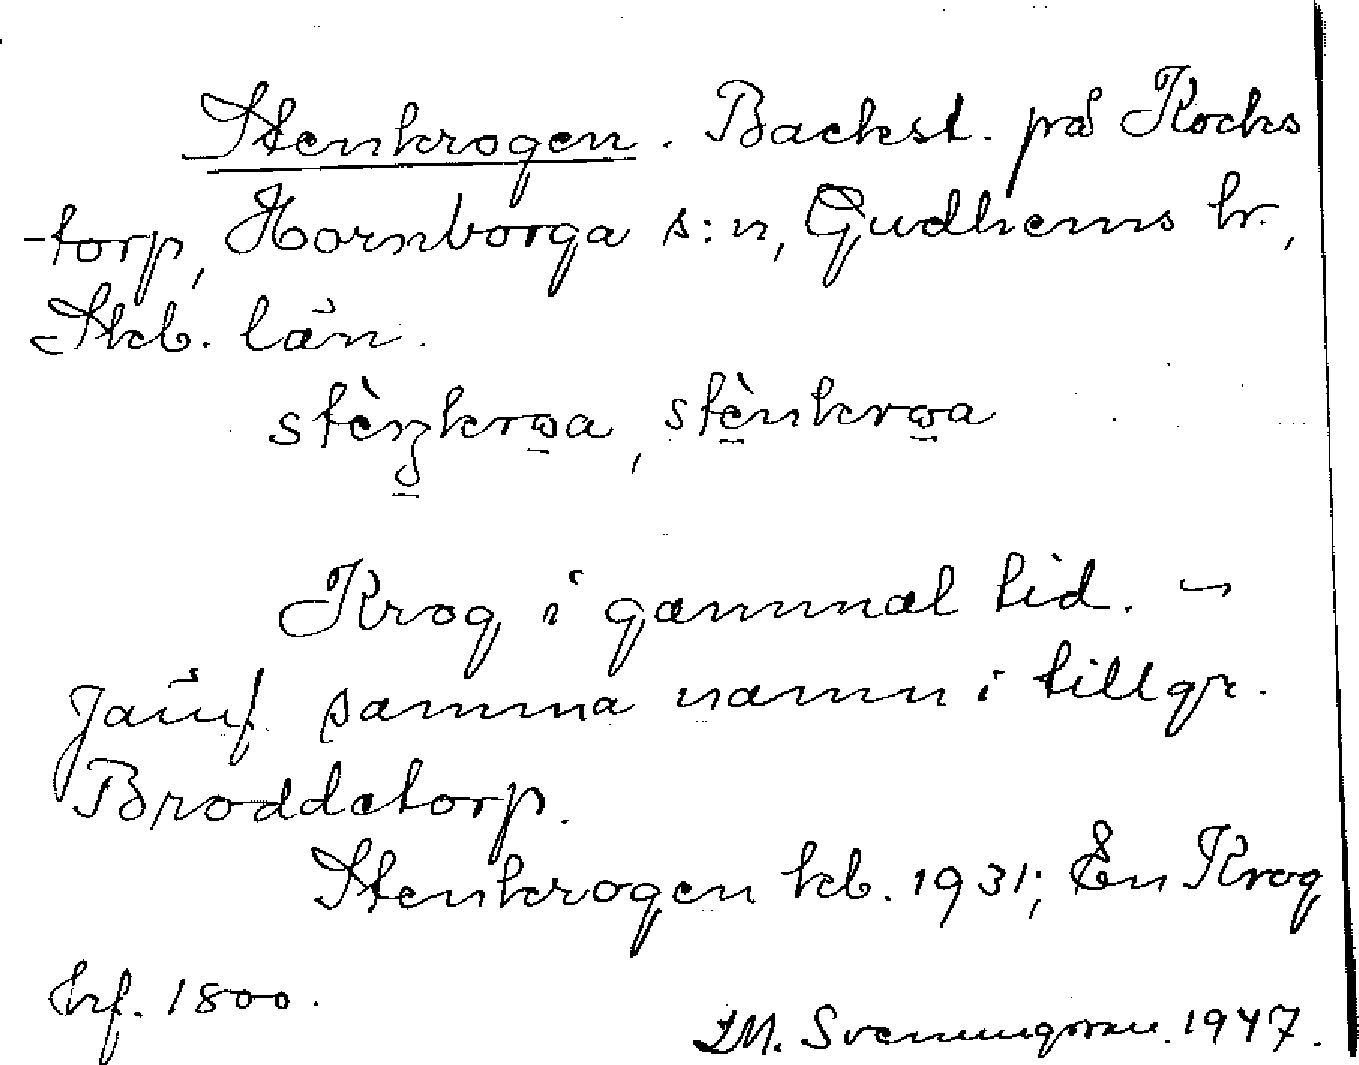 Stenkrogen. Backst. på Kocks
-torp, Hornborga s:n, Gudhems hr.,
Skb. län.
stèŋkrωa, stènkrωa
Krog i gammal tid. –
Jämf. samma namn i tillgr.
Broddetorp.
Stenkrogen kb. 1931; En Krog
hf. 1800.
Svenungsson. 1947.